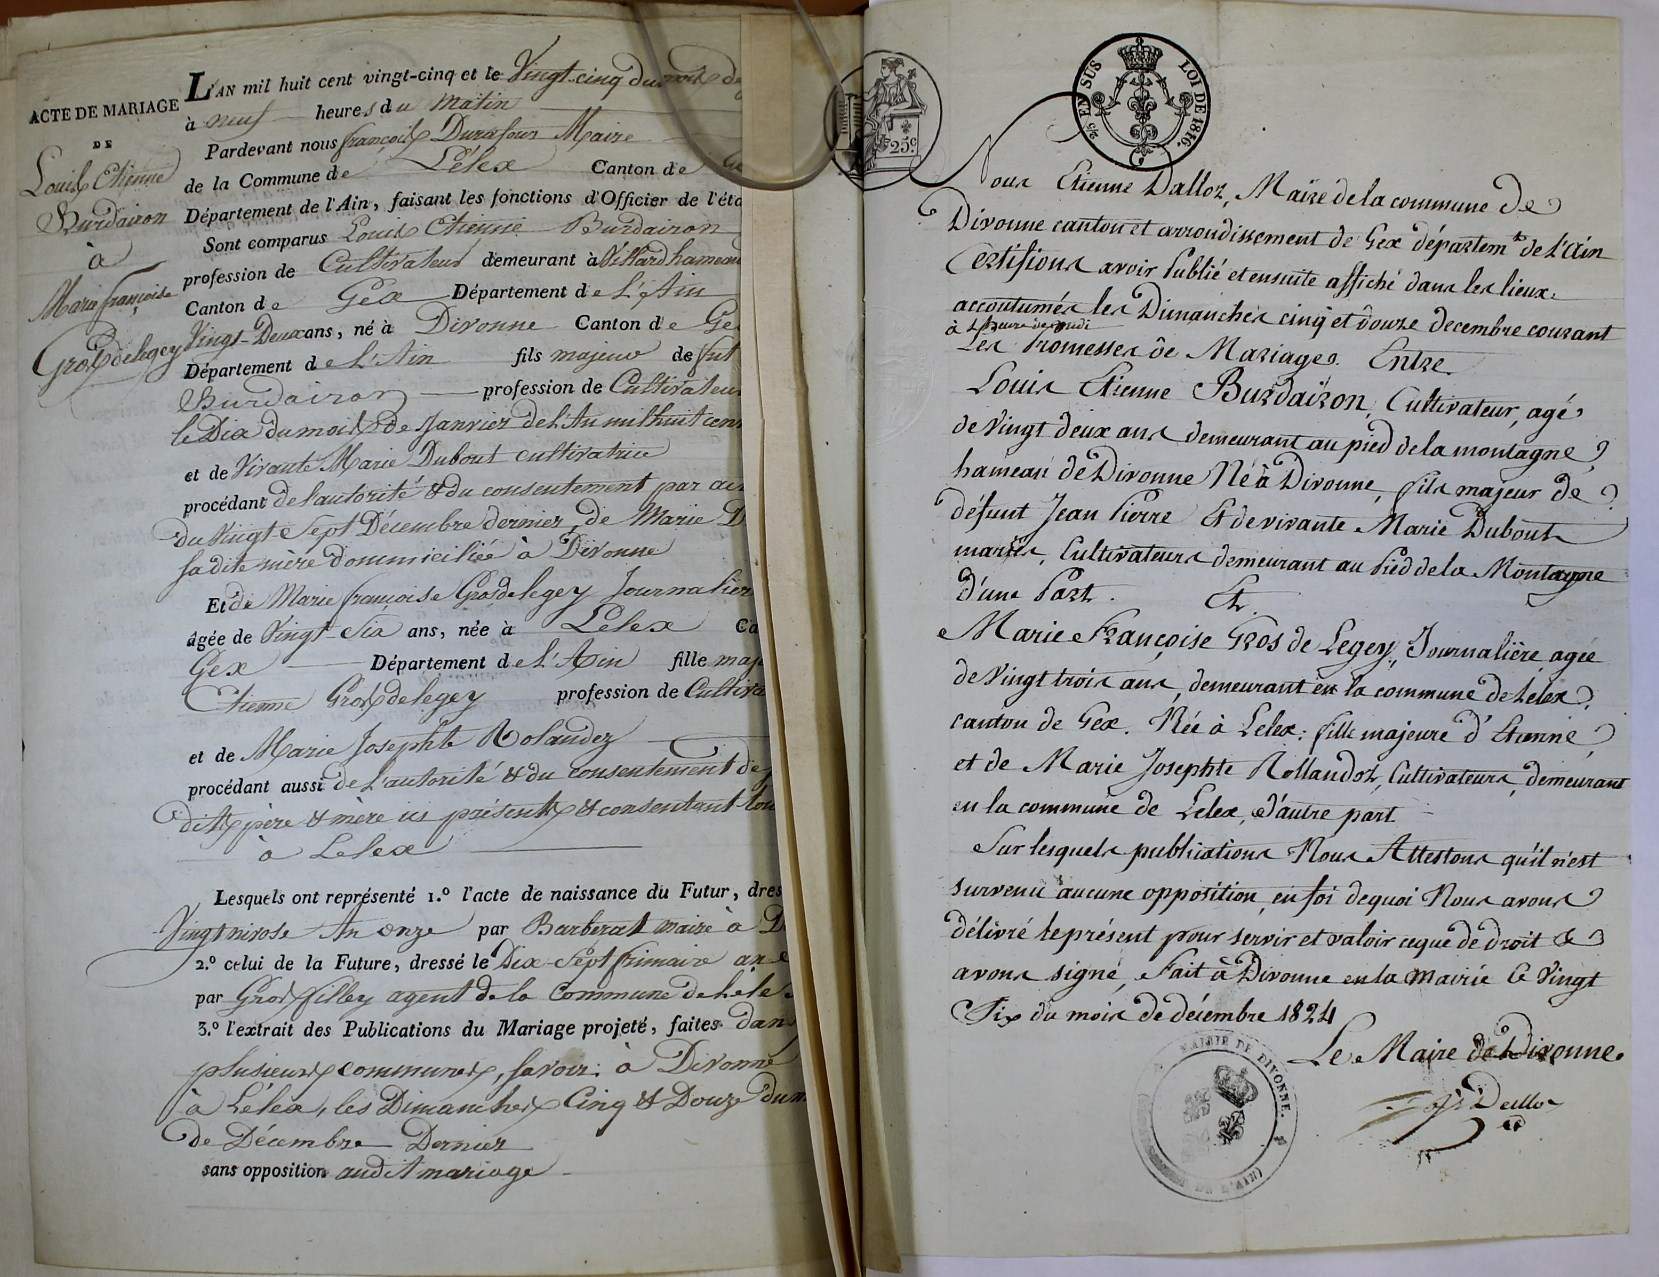 ACTE DE MARIAGE
DE
Louis Etienne
Burdairon
à
Marie françoise
Grosdelegey
L'AN mil huit cent vingt-cinq et le Vingt-cinq du mois de
à neuf heures du matin
Pardevant nous françois Durafour Maire
de la Commune de Lélex Canton de
Département de l'Ain, faisant les fonctions d'Officier de l'éta
Sont comparus Louis Etienne Burdairon
profession de Cultivateur demeurant à Villard hameau
Canton de Gex Département de L'Ain
Vingt-Deux ans, né à Divonne Canton de Ge
Département de L'Ain fils majeur de fut
Burdairon profession de Cultivateur
le Dix du mois de Janvier de l'An mil huit cent
et de Vivante Marie Dubout cultivatrice
procédant de l'autorité & du consentement par ac
du Vingt Sept Décembre dernier, de Marie D
sa dite mère dommiciliée à Divonne
Et de Marie françoise Grosdelegey Journalier
âgée de Vingt-Six ans, née à Lelex Ca
Gex Département de L'Ain fille maj
Etienne Grosdelegey profession de Cultiva
et de Marie Josephte Rolandez
procédant aussi de L'autorité & du consentement de
dits père & mère ici présents & consentant
à Lelex
Lesquels ont représenté 1.º l'acte de naissance du Futur, dres
Vingt nivose An onze par Barberat maire à D
2.º celui de la Future, dressé le Dix-Sept frimaire an
par Grosfilley agent de la Commune de Lele
3.º l'extrait des Publications du Mariage projeté, faites dans
plusieurs communes, savoir: à Divonne
à Lélex, les Dimanches Cinq & Douze du m
de Décembre Dernier
sans opposition audit mariage
25.c
EN SUS
LOI DE 1816.
Nous Etienne Dalloz, Maire de la commune de
Divonne canton et arrondissement de Gex départem.t de L'Ain
Certifions avoir Publié et ensuite affiché dans les lieux
accoutumés les Dimanches cinq et douze decembre courant
à l'heure de midi
Les Promesses de Mariage. Entre
Louis Etienne Burdaïron, Cultivateur, agé
de Vingt deux ans demeurant au pied de la montagne
hameau de Divonne Né à Divonne, fils majeur de
défunt Jean Pierre Et de vivante Marie Dubout
mariés, Cultivateurs demeurant au Pied de la Montagne
d'une Part. Et.
Marie Françoise Gros de Legey, Journalière agée
de Vingt trois ans, demeurant en la commune de Lelex,
canton de Gex. Née à Lelex: fille majeure d'Etienne
et de Marie Josephte Rollandoz, Cultivateurs, demeurant
en la commune de Lelex, d'autre part
Sur lesquels publications Nous Attestons qu'il n'est
survenu aucune opposition, en foi de quoi Nous avons
délivré le présent pour servir et valoir ce que de droit &
avons signé, Fait à Divonne en la Mairie le Vingt
Six du mois de décembre 1824
Le Maire de Divonne.
Dallo
MAIRIE DE DIVONNE.
(AIN)